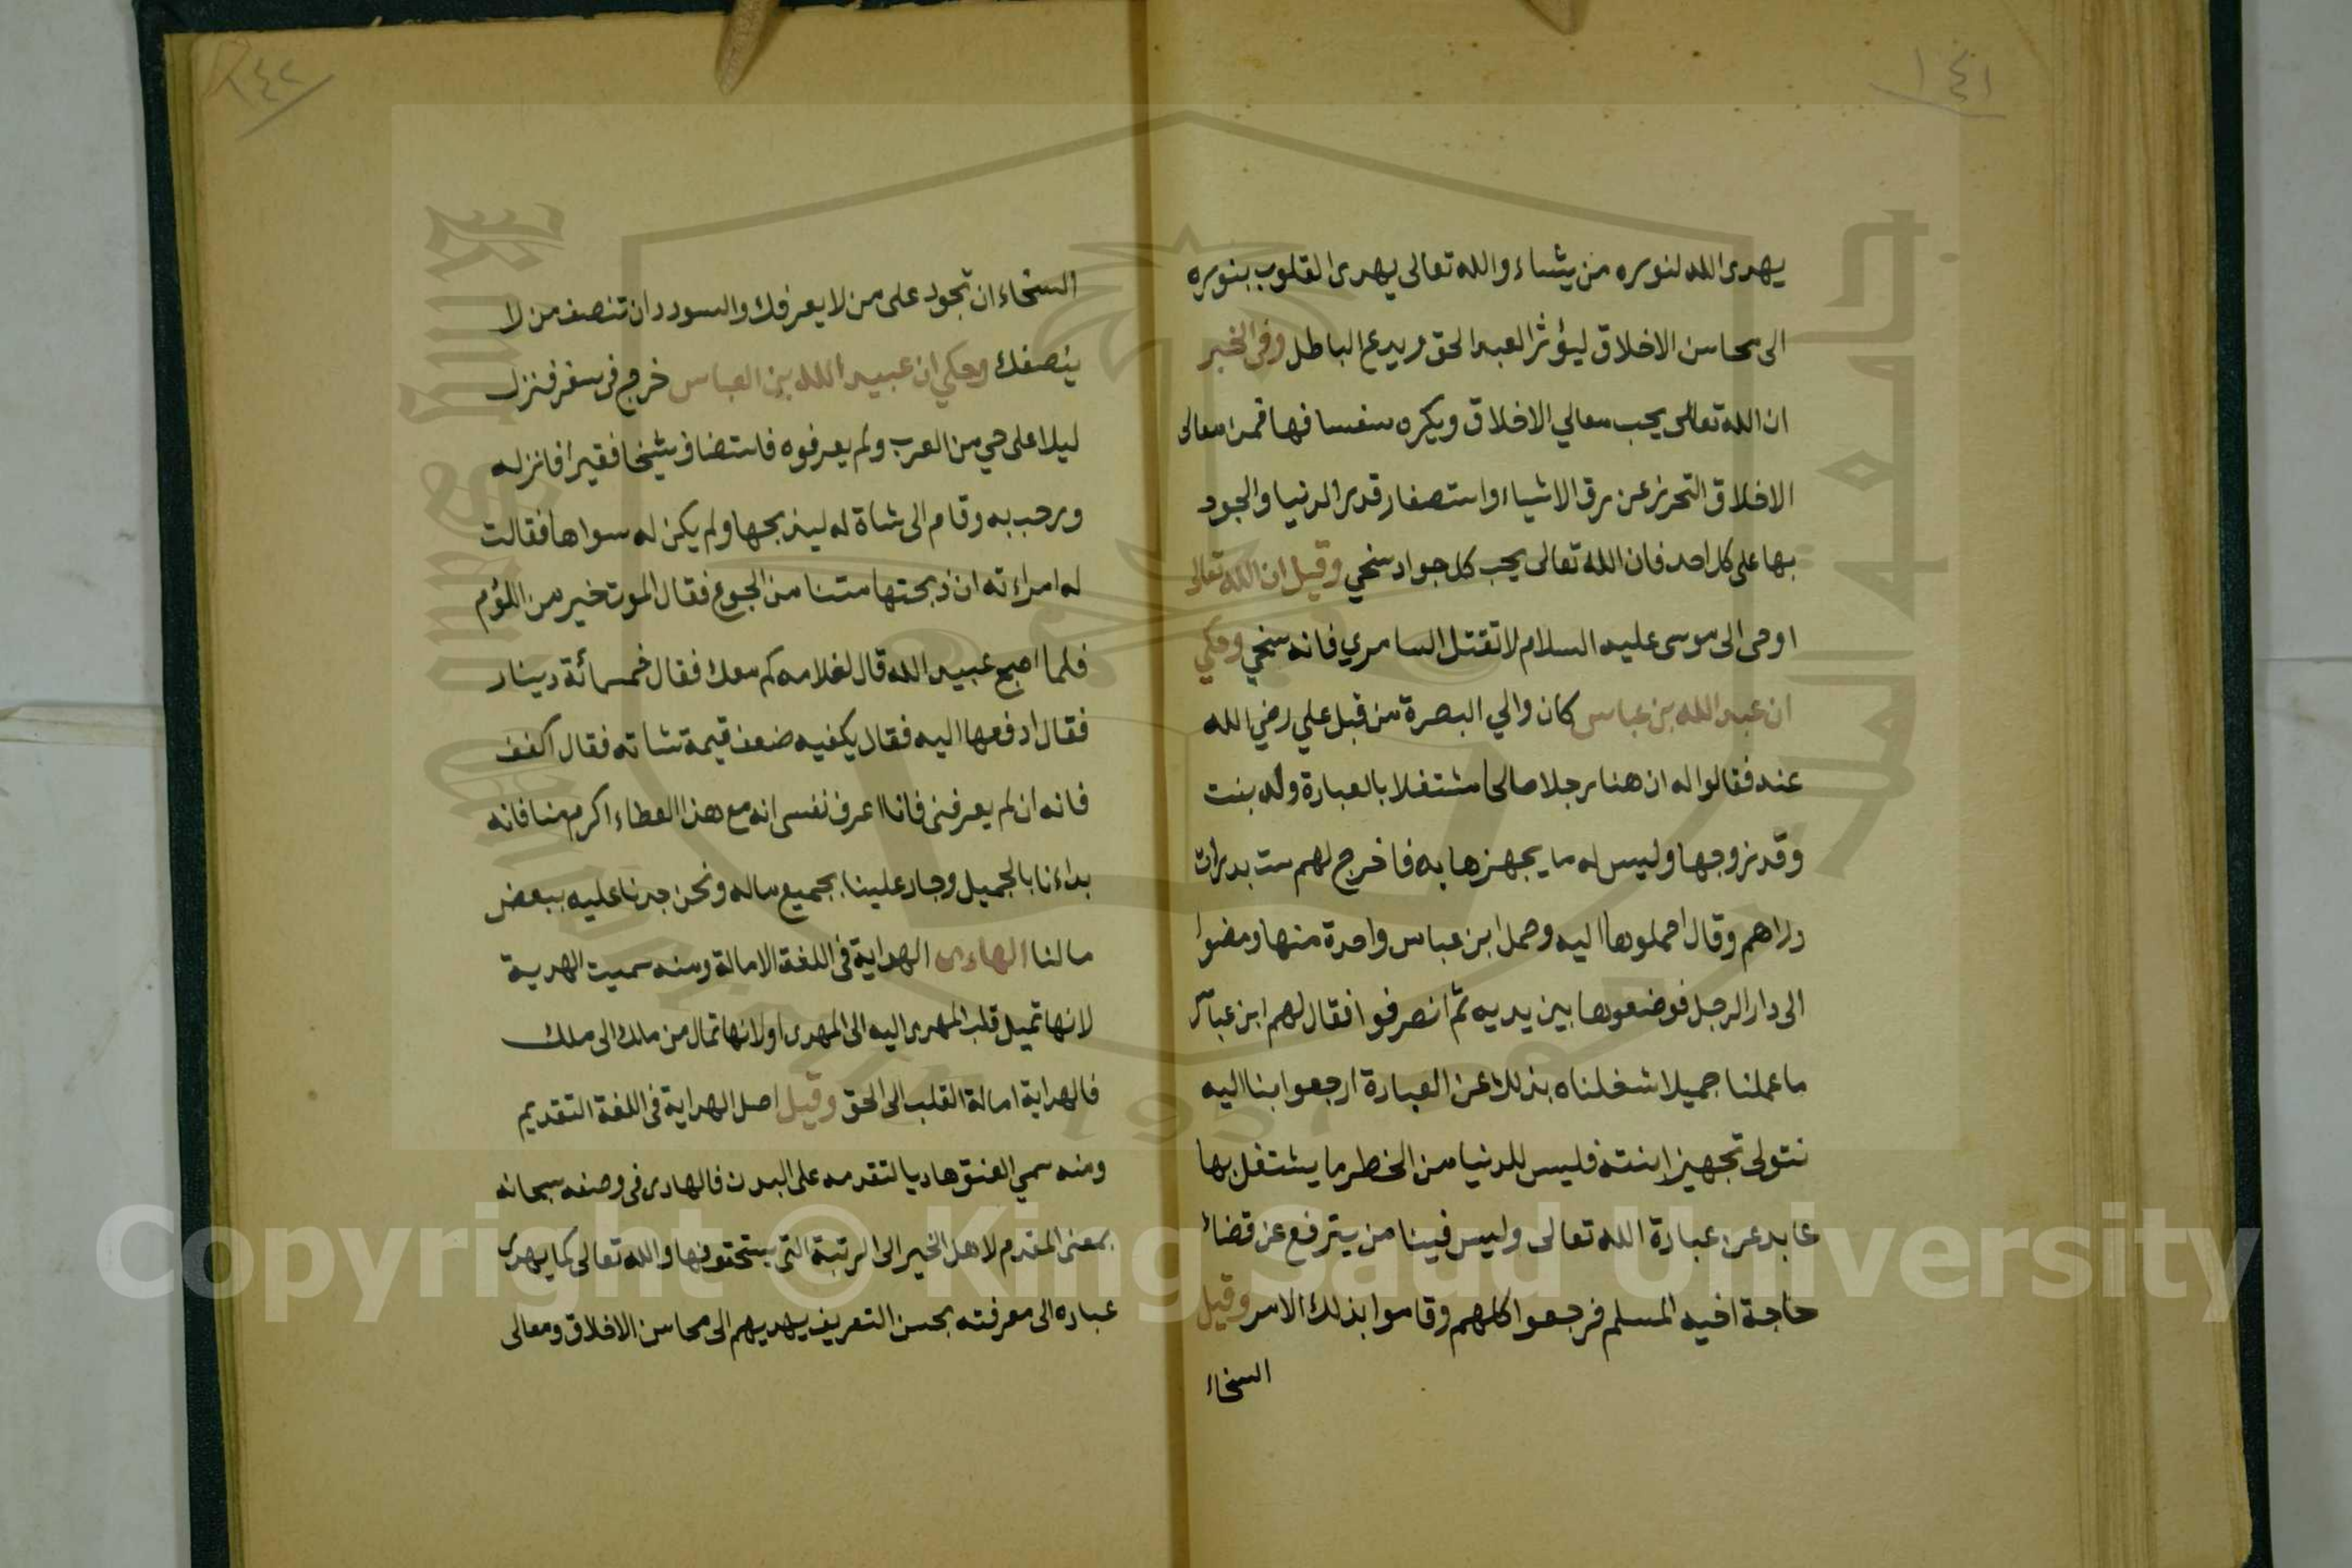 ١٤١
يهدى الله لنوره من يشاء والله تعالى يهدى القلوب بنوره
الى محاسن الاخلاق ليؤثر العبد الحق ويدع الباطل وفى الخبر
ان الله تعالى يحب معالي الاخلاق ويكره سفسافها فمن معالى
الاخلاق التحرز عن رق الاشياء واستصغار قدر الدنيا والجود
بها على كل احد فان الله تعالى يحب كل جواد سخي وقيل ان الله تعالى
اوحى الى موسى عليه السلام لا تقتل السامري فانه سخي وحكي
ان عبد الله بن عباس كان والي البصرة من قبل علي رضي الله
عنه فقالوا له ان هنا رجلا صالحا مشتغلا بالعبادة وله بنت
وقد زوجها وليس له ما يجهزها به فاخرج لهم ست بدرات
دراهم وقال احملوها اليه وحمل ابن عباس واحدة منها ومضوا
الى دار الرجل فوضعوها بين يديه ثم انصرفوا فقال لهم ابن عباس
ما عملنا جميلا شغلناه بذلك عن العبادة ارجعوا بنا اليه
نتولى تجهيز ابنته فليس للدنيا من الخطر ما يشتغل بها
عابد عن عبادة الله تعالى وليس فينا من يترفع عن قضاء
حاجة اخيه المسلم فرجعوا كلهم وقاموا بذلك الامر وقيل
السخاء
٢٤٢
السخاء ان تجود على من لا يعرفك والسودد ان تنصف من لا
ينصفك وحكي ان عبيد الله بن العباس خرج فى سفر فنزل
ليلا على حي من العرب ولم يعرفوه فاستضاف شيخا فقيرا فانزله
ورحب به وقام الى شاة له ليذبحها ولم يكن له سواها فقالت
له امراءته ان ذبحتها متنا من الجوع فقال الموت خير من اللؤم
فلما اصبح عبيد الله قال لغلامه كم معك فقال خمسمائة دينار
فقال ادفعها اليه فقال يكفيه ضعف قيمة شاته فقال اكفف
فانه ان لم يعرفنى فانا اعرف نفسى انه مع هذا العطاء اكرم منا فانه
بداءنا بالجميل وجاد علينا بجميع ماله ونحن جدنا عليه ببعض
مالنا الهادى الهداية فى اللغة الامالة ومنه سميت الهدية
لانها تميل قلب المهدى اليه الى المهدى او لانها تمال من ملك الى ملك
فالهداية امالة القلب الى الحق وقيل اصل الهداية فى اللغة التقديم
ومنه سمي العنق هاديا لتقدمه على البدن فالهادى فى وصفه سبحانه
بمعنى المقدم لاهل الخير الى الرتبة التى يستحقونها والله تعالى كما يهدى
عباده الى معرفته بحسن التعريف يهديهم الى محاسن الاخلاق ومعالى
Copyright © King Saud University